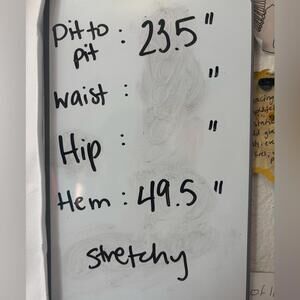 Pit to pit : 23.5"
waist : "
Hip : "
Hem : 49.5"
stretchy